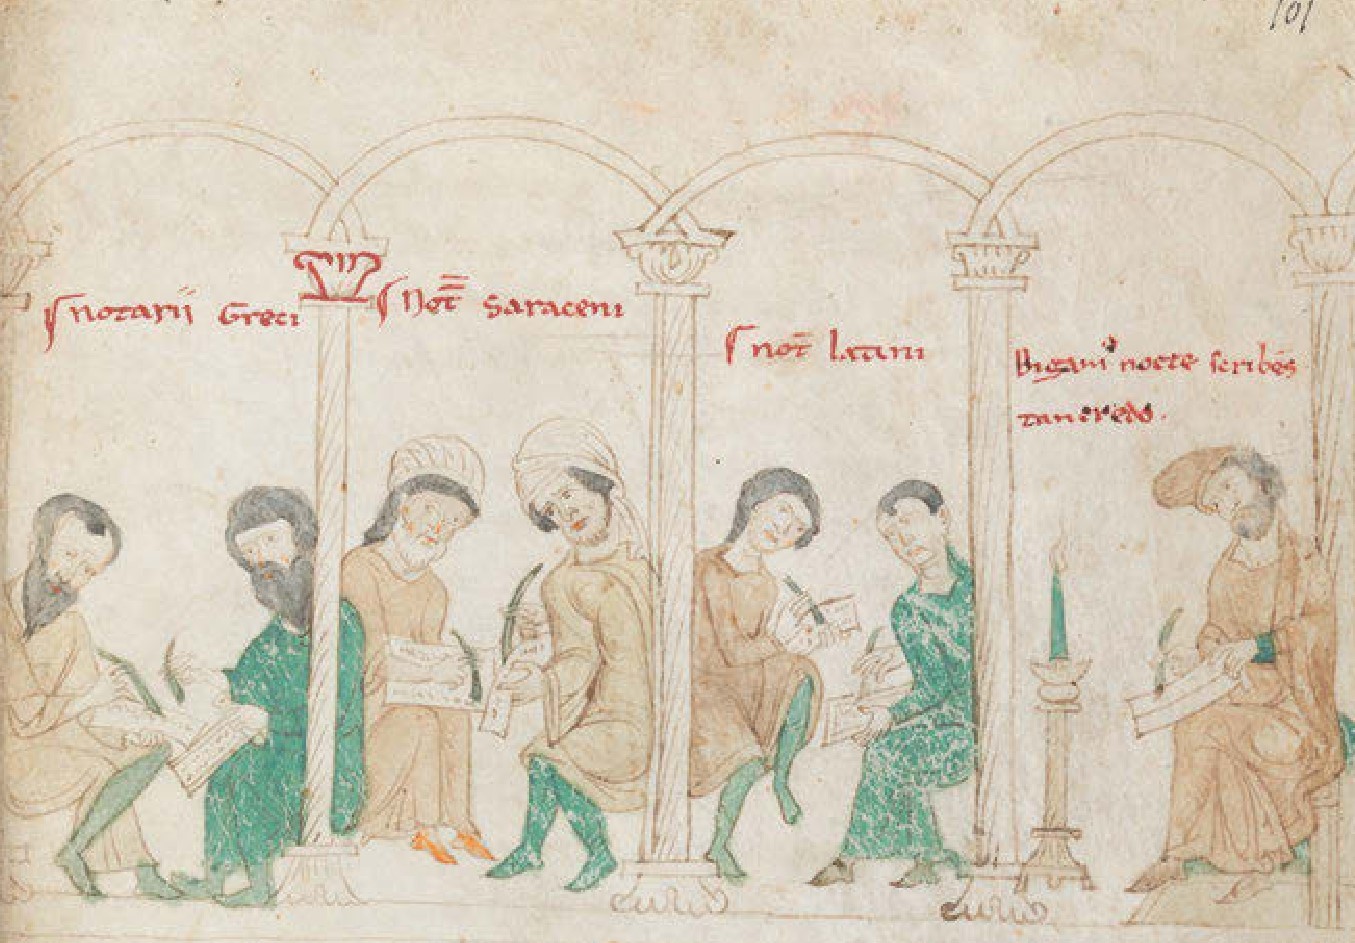 101
notarii Greci
Not̄ Saraceni
not̄ latini
nocte scribēs
tancredo.